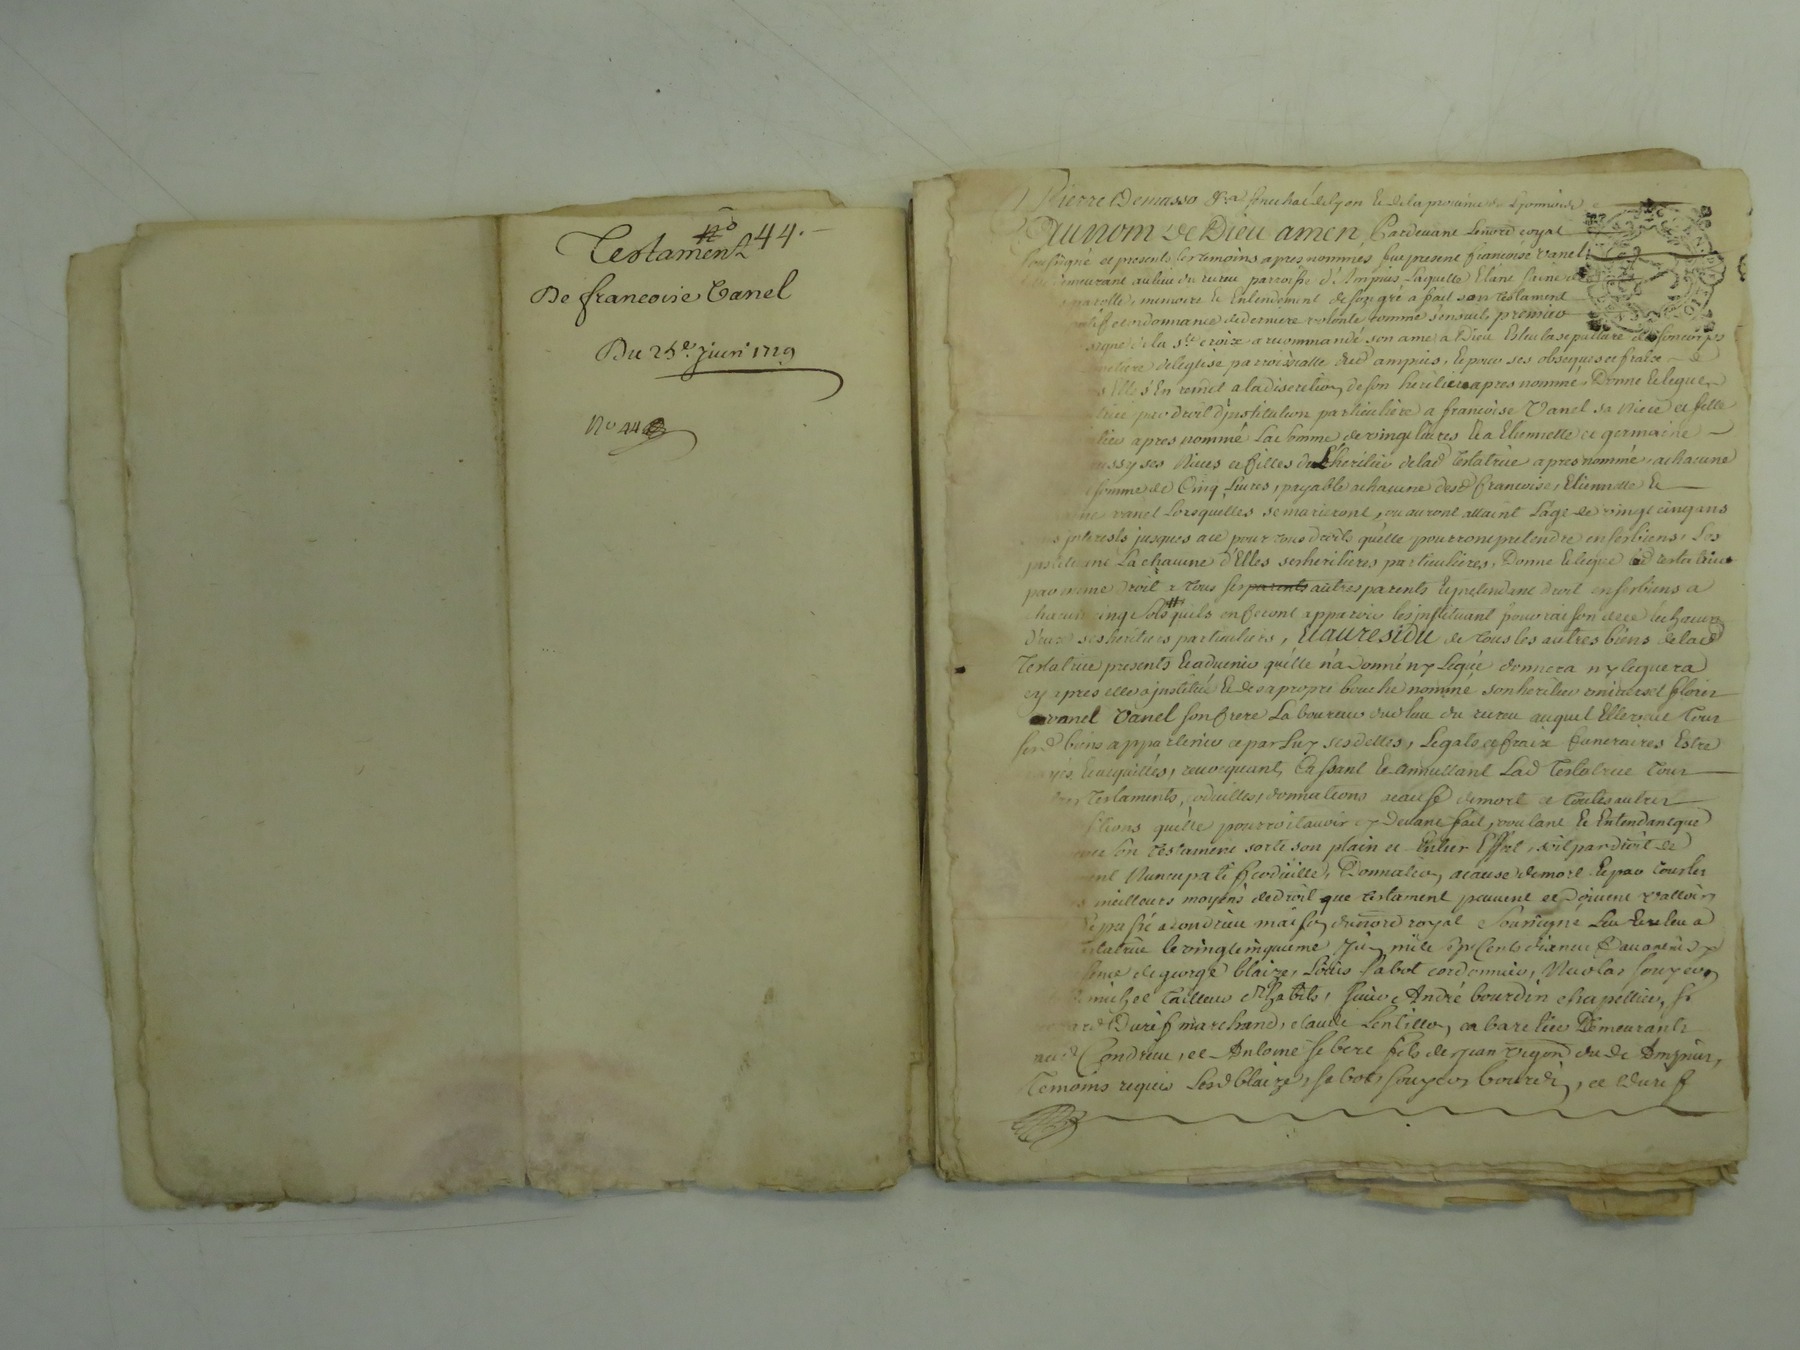 nº 44.
Testament
De francoise Vanel
Du 25e. Juin 1719
No 44
Pierre Demasso sénéchal de Lyon et de la province de Lyonnois
Au nom de Dieu amen, Pardevant le nore royal
soussigné et presents les temoins apres nommés fut presente francoise vanel
demeurant au lieu du parroisse d'Ampuis Laquelle Etant saine de
parolle, memoire et Entendement de son gré a fait son testament
et ordonnance de derniere volonté comme sensuit, premier
signe de la ste. croix a recommandé son ame a Dieu Esleu la sepulture de son corps
de leglise parroissialle dud ampuis, Et pour ses obseques et fraix de
Elle s'En remet a la discretion de son heritier apres nommé, Donne et legue
par droit d'institution particuliere a francoise Vanel sa Niece et fille
apres nommé La somme de vingt livres Et a Etiennette et germaine
aussy ses Nieces et filles du L'heritier de lad Testatrice apres nommé, a chacune
somme de Cinq Livres, payable a chacune desd francoise, Etiennette Et
vanel Lorsquelles se marieront, ou auront attaint L'age de vingt cinq ans
interests jusques a ce pour tous droits quelle pourront pretendre en ses biens, Les
instituant La chacune d'Elles ses heritieres particulieres, Donne Et legue lad testatrice
par meme droit a tous ses parents autres parents Et pretendant droit en ses biens a
chacun cinq sols quils en feront apparoir les instituant pour raison de ce un chacun
D'eux ses heritiers particuliers, Et au residu de tous les autres biens de lad
Testatrice presents Et advenir qu'elle n'a donné ny Legué donnera ny leguera
cy apres elle a institué Et de sa propre bouche nommé son heritier universel
vanel Vanel son frere Laboureur dud lieu du auquel Elle veut tous
sesd biens appartenir et par Luy ses dettes, Legats et fraix funeraires Estre
payés Et acquittés, revocquant, Cassant Et Annullant Lad Testatrice tous
Testaments, codicilles, donnations a cause de mort et toutes autres
quelle pourroit avoir cy Devant fait, voulant Et Entendant que
son testament sorte son plain et Entier Effet, soit par droit de
Nuncupatif codicille, Donnation a cause de mort Et par tous les
meilleurs moyens de droit que testament peuvent et doivent valloir
passé a condrieu maison dud nore royal soussigné Leu Et releu a
testatrice le vingt cinquieme Juin mille sept Cents dixneuf avant midy
de george blaize, Loüis Sabot cordonnier, Nicolas souyeon
michel Tailleur d'habits, sieur André bourdin chapellier, sr
Durif marchand, claude Lentillon cabaretier Demeurants
aud Condrieu, et Antoine fils de Jean dud Ampuis,
temoins requis Lesd blaize, sabot, souyeon, bourdin, et Durif